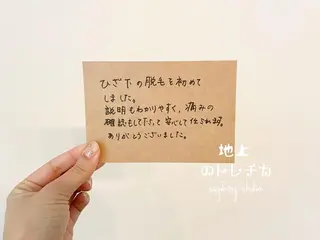 ひざ下の脱毛を初めて
しました。
説明もわかりやすく、痛みの
確認もして下さって安心して任せれます。
ありがとうございました。
地上
のトレチカ